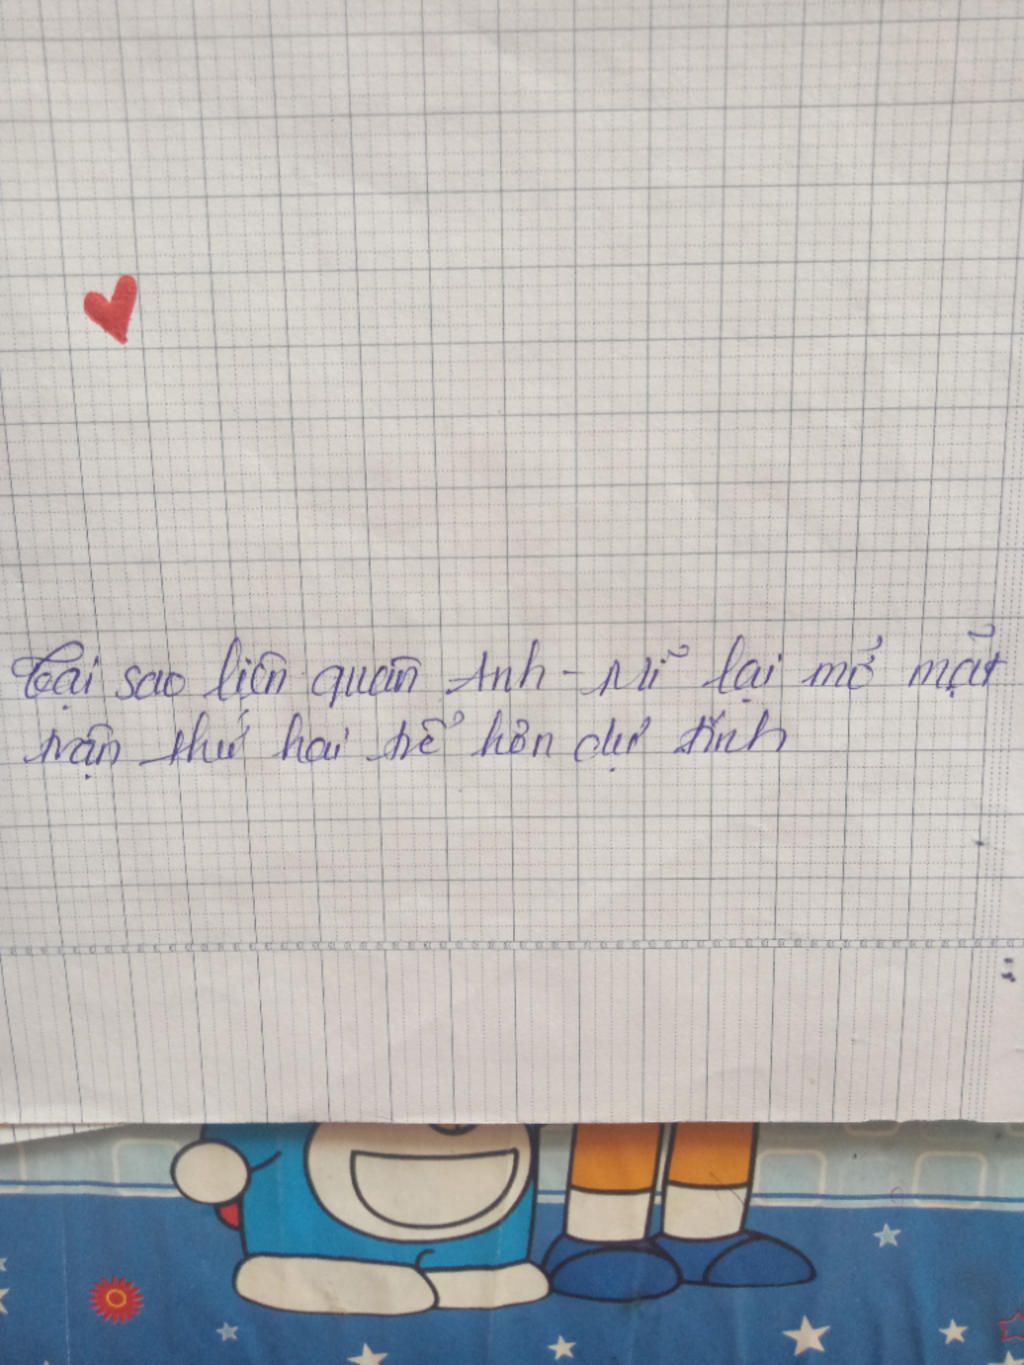 Tại sao liên quân Anh - Mĩ lại mở mặt
trận thứ hai trễ hơn dự tính